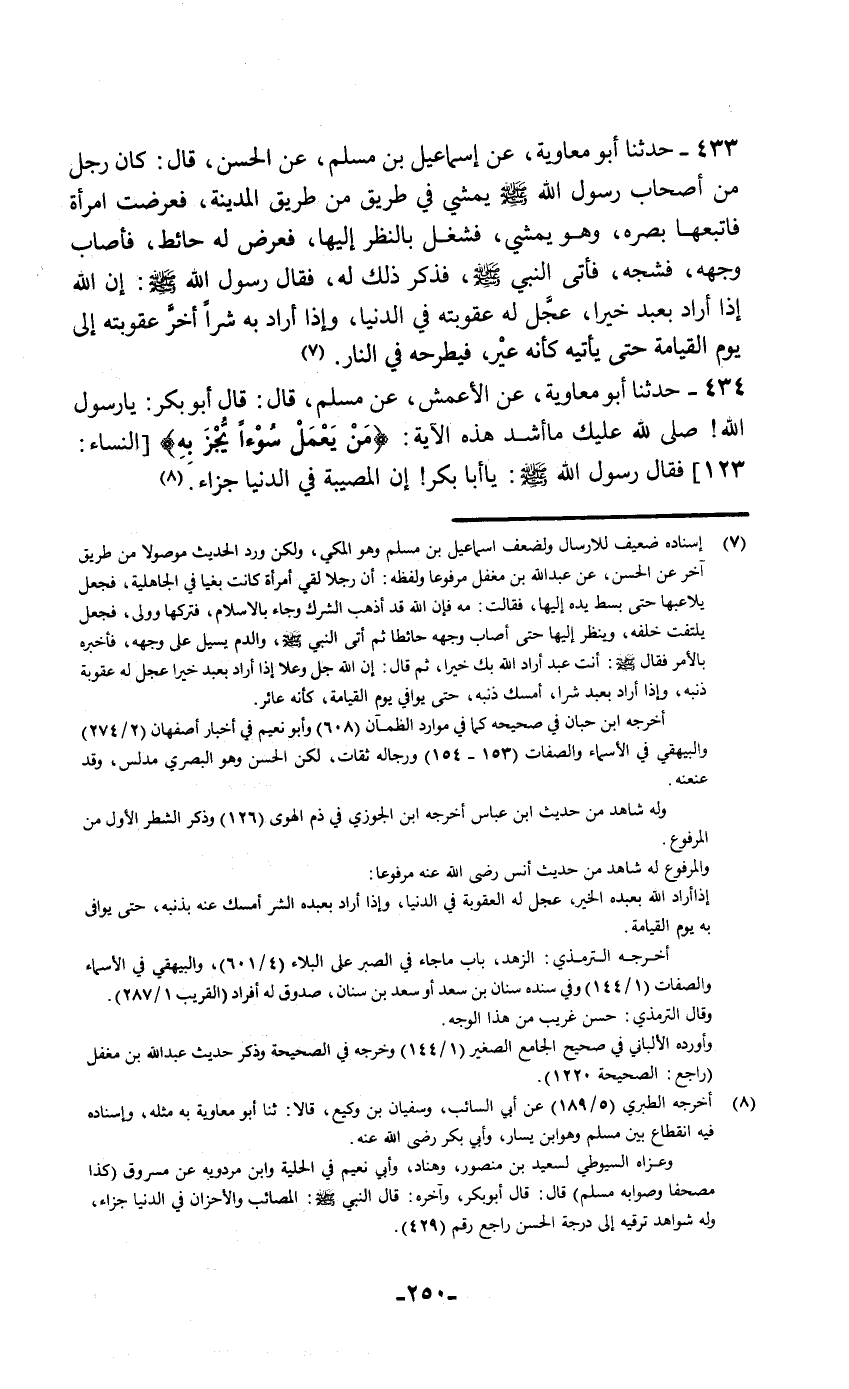 ٤٣٣ ـ حدثنا أبو معاوية، عن إسماعيل بن مسلم، عن الحسن، قال: كان رجل
من أصحاب رسول الله ﷺ يمشي في طريق من طريق المدينة، فعرضت امرأة
فاتبعها بصره، وهو يمشي، فشغل بالنظر إليها، فعرض له حائط، فأصاب
وجهه، فشجه، فأتى النبي ﷺ، فذكر ذلك له، فقال رسول الله ﷺ: إن الله
إذا أراد بعبد خيرا، عجَّل له عقوبته في الدنيا، وإذا أراد به شراً أخرَّ عقوبته إلى
يوم القيامة حتى يأتيه كأنه عيْر، فيطرحه في النار. (٧)
٤٣٤ ـ حدثنا أبو معاوية، عن الأعمش، عن مسلم، قال: قال أبو بكر: يارسول
الله! صلى لله عليك ماأشد هذه الآية: ﴿مَنْ يَعْمَلْ سُوْءاً يُّجْزَ بِهِ﴾ [النساء:
١٢٣] فقال رسول الله ﷺ: ياأبا بكر! إن المصيبة في الدنيا جزاء. (٨)
(٧) إسناده ضعيف للارسال ولضعف اسماعيل بن مسلم وهو المكي، ولكن ورد الحديث موصولا من طريق
آخر عن الحسن، عن عبدالله بن مغفل مرفوعا ولفظه: أن رجلا لقي أمرأة كانت بغيا في الجاهلية، فجعل
يلاعبها حتى بسط يده إليها، فقالت: مه فإن الله قد أذهب الشرك وجاء بالاسلام، فتركها وولى، فجعل
يلتفت خلفه، وينظر إليها حتى أصاب وجهه حائطا ثم أتى النبي ﷺ، والدم يسيل على وجهه، فأخبره
بالأمر فقال ﷺ: أنت عبد أراد الله بك خيرا، ثم قال: إن الله جل وعلا إذا أراد بعبد خيرا عجل له عقوبة
ذنبه، وإذا أراد بعبد شرا، أمسك ذنبه، حتى يوافي يوم القيامة، كأنه عائر.
أخرجه ابن حبان في صحيحه كما في موارد الظمآن (٦٠٨) وأبو نعيم في أخبار أصفهان (٢/ ٢٧٤)
والبيهقي في الأسماء والصفات (١٥٣ ـ ١٥٤) ورجاله ثقات، لكن الحسن وهو البصري مدلس، وقد
عنعنه.
وله شاهد من حديث ابن عباس أخرجه ابن الجوزي في ذم الهوى (١٢٦) وذكر الشطر الأول من
المرفوع.
والمرفوع له شاهد من حديث أنس رضى الله عنه مرفوعا:
إذاأراد الله بعبده الخير، عجل له العقوبة في الدنيا، وإذا أراد بعبده الشر أمسك عنه بذنبه، حتى يوافى
به يوم القيامة.
أخرجه الترمذي: الزهد، باب ماجاء في الصبر على البلاء (٤/ ٦٠١)، والبيهقي في الأسماء
والصفات (١/ ١٤٤) وفي سنده سنان بن سعد أو سعد بن سنان، صدوق له أفراد (القريب ١/ ٢٨٧).
وقال الترمذي: حسن غريب من هذا الوجه.
وأورده الألباني في صحيح الجامع الصغير (١/ ١٤٤) وخرجه في الصحيحة وذكر حديث عبدالله بن مغفل
(راجع: الصحيحة ١٢٢٠).
(٨) أخرجه الطبري (٥/ ١٨٩) عن أبي السائب، وسفيان بن وكيع، قالا: ثنا أبو معاوية به مثله، وإسناده
فيه انقطاع بين مسلم وهوابن يسار، وأبي بكر رضى الله عنه.
وعزاه السيوطي لسعيد بن منصور، وهناد، وأبي نعيم في الحلية وابن مردويه عن مسروق (كذا
مصحفا وصوابه مسلم) قال: قال أبوبكر، وآخره: قال النبي ﷺ: المصائب والأحزان في الدنيا جزاء،
وله شواهد ترقيه إلى درجة الحسن راجع رقم (٤٢٩).
ـ ٢٥٠ ـ